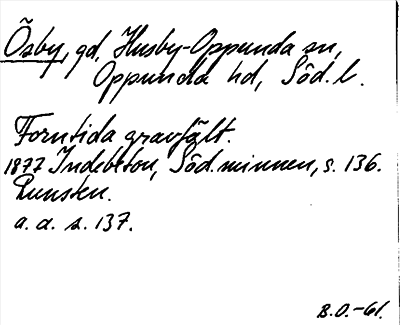 Ösby, gd, Husby-Oppunda sn,
Oppunda hd, Söd. l.
Forntida gravfält.
1877 Indebetou, Söd. minnen, s. 136.
Runsten.
a. a. s. 137.
B.O.-61.